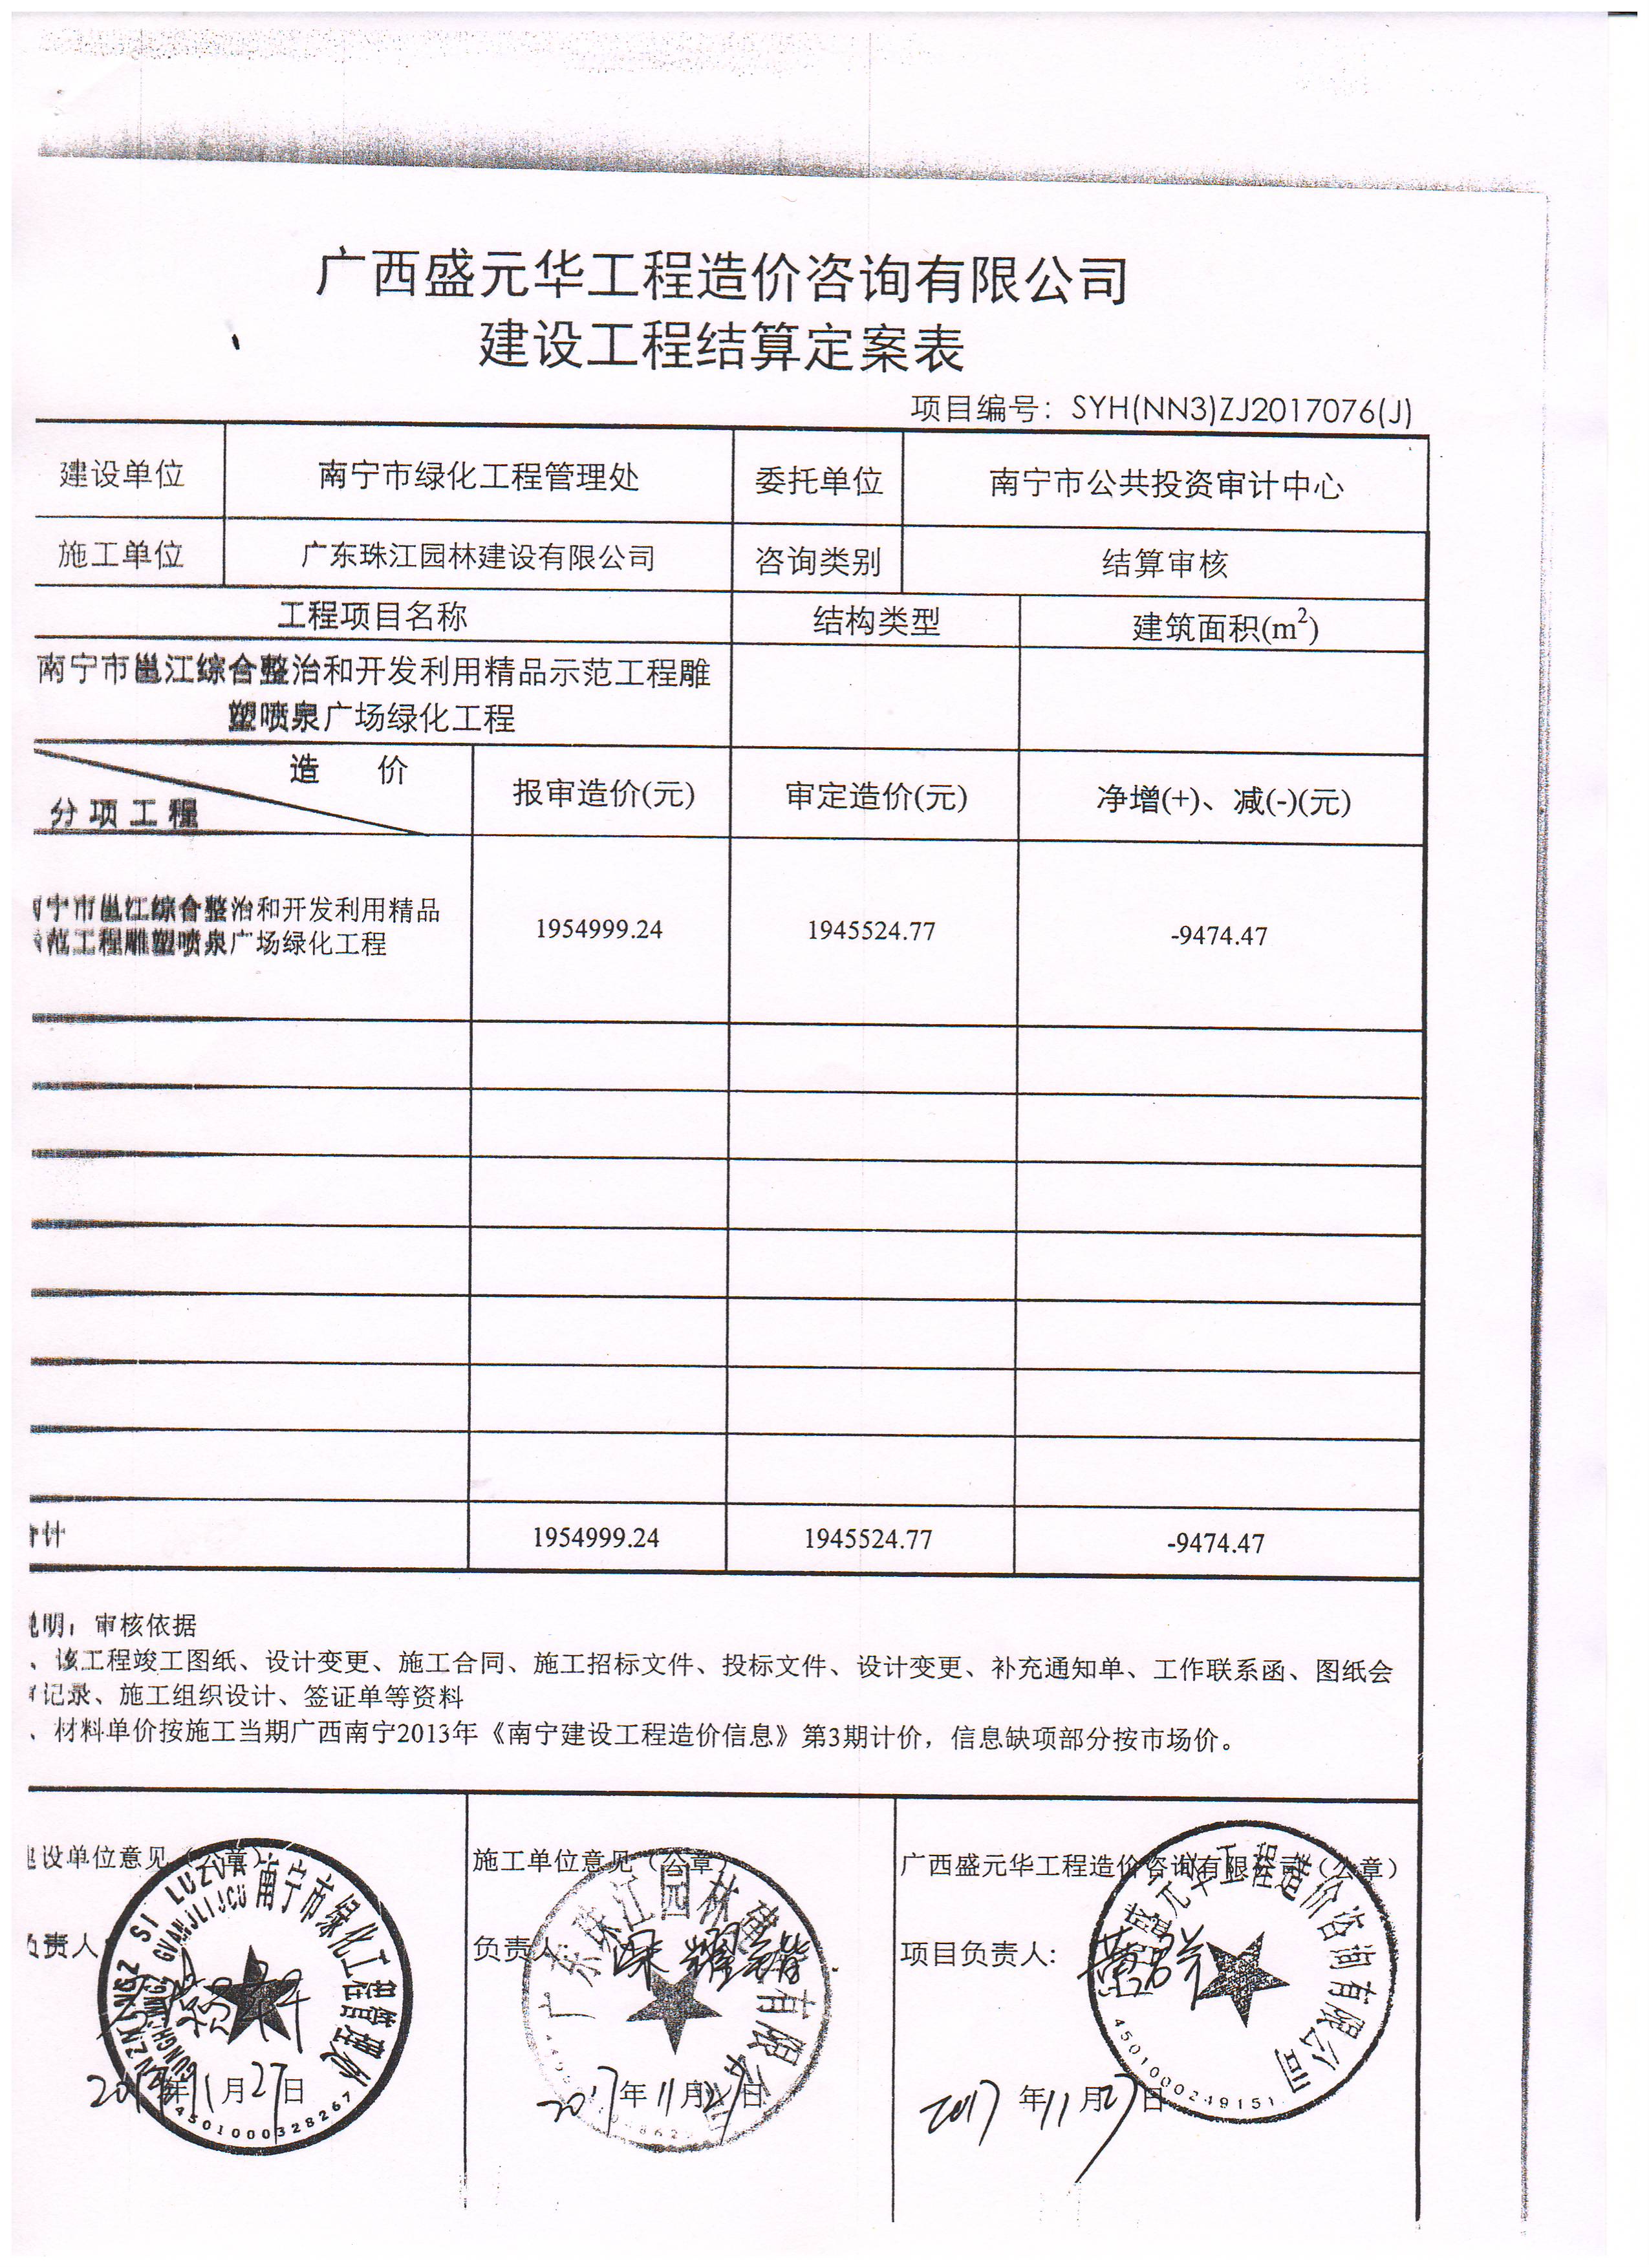 广西盛元华工程造价咨询有限公司
建设工程结算定案表
项目编号：SYH(NN3)ZJ2017076(J)
建设单位 南宁市绿化工程管理处 委托单位 南宁市公共投资审计中心
施工单位 广东珠江园林建设有限公司 咨询类别 结算审核
工程项目名称 结构类型 建筑面积(m²)
南宁市邕江综合整治和开发利用精品示范工程雕
塑喷泉广场绿化工程
造 价
分项工程 报审造价(元) 审定造价(元) 净增(+)、减(-)(元)
宁市邕江综合整治和开发利用精品
范工程雕塑喷泉广场绿化工程
1954999.24 1945524.77 -9474.47
合计 1954999.24 1945524.77 -9474.47
说明：审核依据
、该工程竣工图纸、设计变更、施工合同、施工招标文件、投标文件、设计变更、补充通知单、工作联系函、图纸会
记录、施工组织设计、签证单等资料
、材料单价按施工当期广西南宁2013年《南宁建设工程造价信息》第3期计价，信息缺项部分按市场价。
建设单位意见（公章） 施工单位意见（公章） 广西盛元华工程造价咨询有限公司（公章）
负责人 负责人: 项目负责人:
2017年11月27日 2017年11月27日 2017年11月27日
南宁市绿化工程管理处
4501000328267
广东珠江园林建设有限公司
盛元华工程造价咨询有限公司
4501000249151